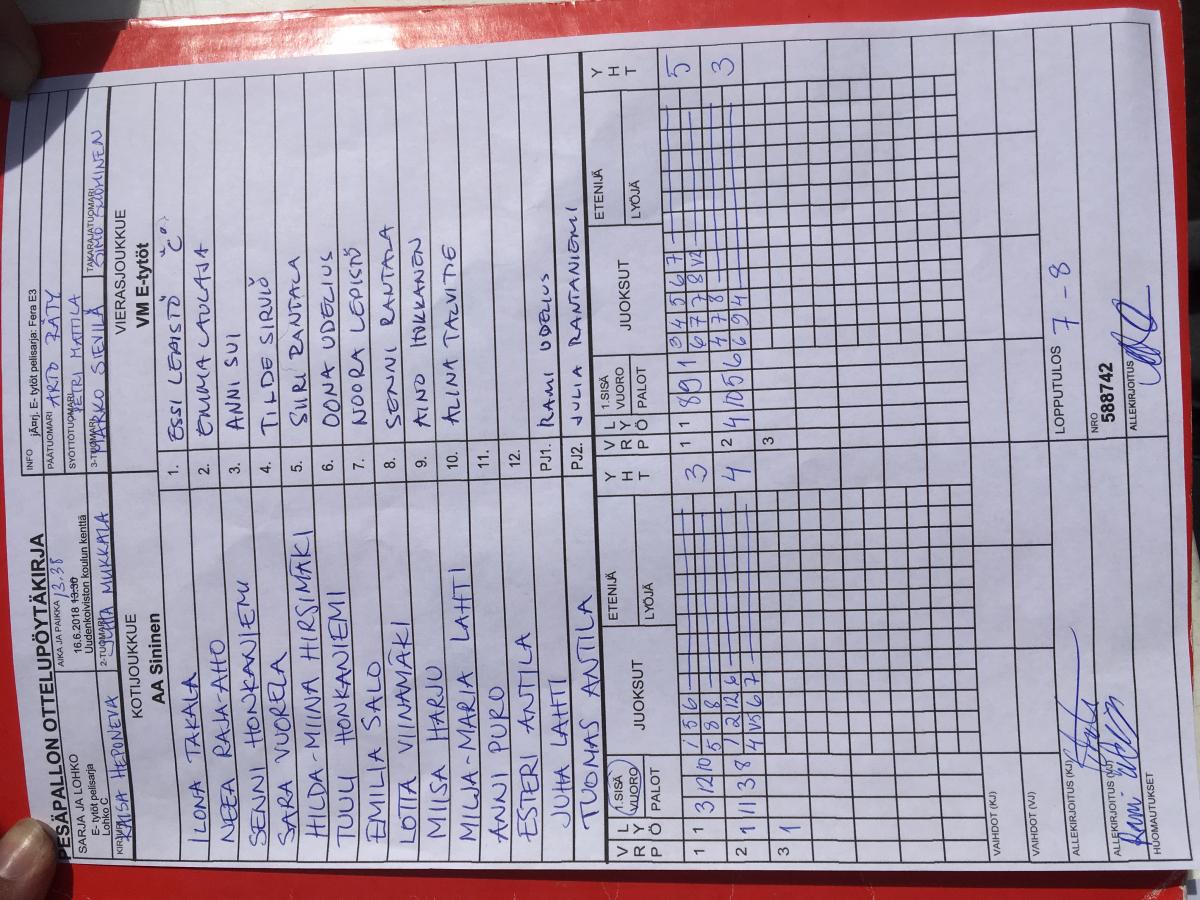 PESÄPALLON OTTELUPÖYTÄKIRJA
SARJA JA LOHKO
E- tytöt pelisarja
Lohko C
AIKA JA PAIKKA 13.38
16.6.2018 13:30
Uudenkoiviston koulun kenttä
INFO jÄ¤rj. E- tytöt pelisarja: Fera E3
PÄÄTUOMARI ARTO RÄTY
SYÖTTÖTUOMARI PETRI MATTILA
KAISA HEPONEVA
2-TUOMARI JUTTA MUKKALA
3-TUOMARI MARKO SIEVILÄ
TAKARAJATUOMARI SIMO SUOMINEN
KOTIJOUKKUE
AA Sininen
VIERASJOUKKUE
VM E-tytöt
ILONA TAKALA 1. ESSI LEPISTÖ "C"
NEEA RAJA-AHO 2. EMMA LAULAJA
SENNI HONKANIEMI 3. ANNI SUI
SARA VUORELA 4. TILDE SIRVIÖ
HILDA-MIINA HIRSIMÄKI 5. SIIRI RANTALA
TUULI HONKANIEMI 6. OONA UDELIUS
EMILIA SALO 7. NOORA LEPISTÖ
LOTTA VIINAMÄKI 8. SENNI RANTALA
MIISA HARJU 9. AINO
MILJA-MARIA LAHTI 10. ALINA TALVITIE
ANNI PURO 11.
ESTERI ANTILA 12.
JUHA LAHTI PJ1. RAMI UDELIUS
TUOMAS ANTILA PJ2. JULIA RANTANIEMI
VRP LYÖ 1.SISÄ VUORO PALOT JUOKSUT ETENIJÄ LYÖJÄ YHT VRP LYÖ 1.SISÄ VUORO PALOT JUOKSUT ETENIJÄ LYÖJÄ YHT
1 1 3 12 10 1 5 6 3 1 1 8 9 1 3 4 5 6 7 5
5 8 8 6 7 7 8 V2
2 1 11 3 8 1 2 12 6 4 2 4 10 5 6 4 7 8 3
4 V5 6 7 6 9 4
3 1 3
VAIHDOT (KJ)
VAIHDOT (VJ)
ALLEKIRJOITUS (KJ)
LOPPUTULOS 7 - 8
ALLEKIRJOITUS (VJ) Rami
NRO
588742
HUOMAUTUKSET
ALLEKIRJOITUS